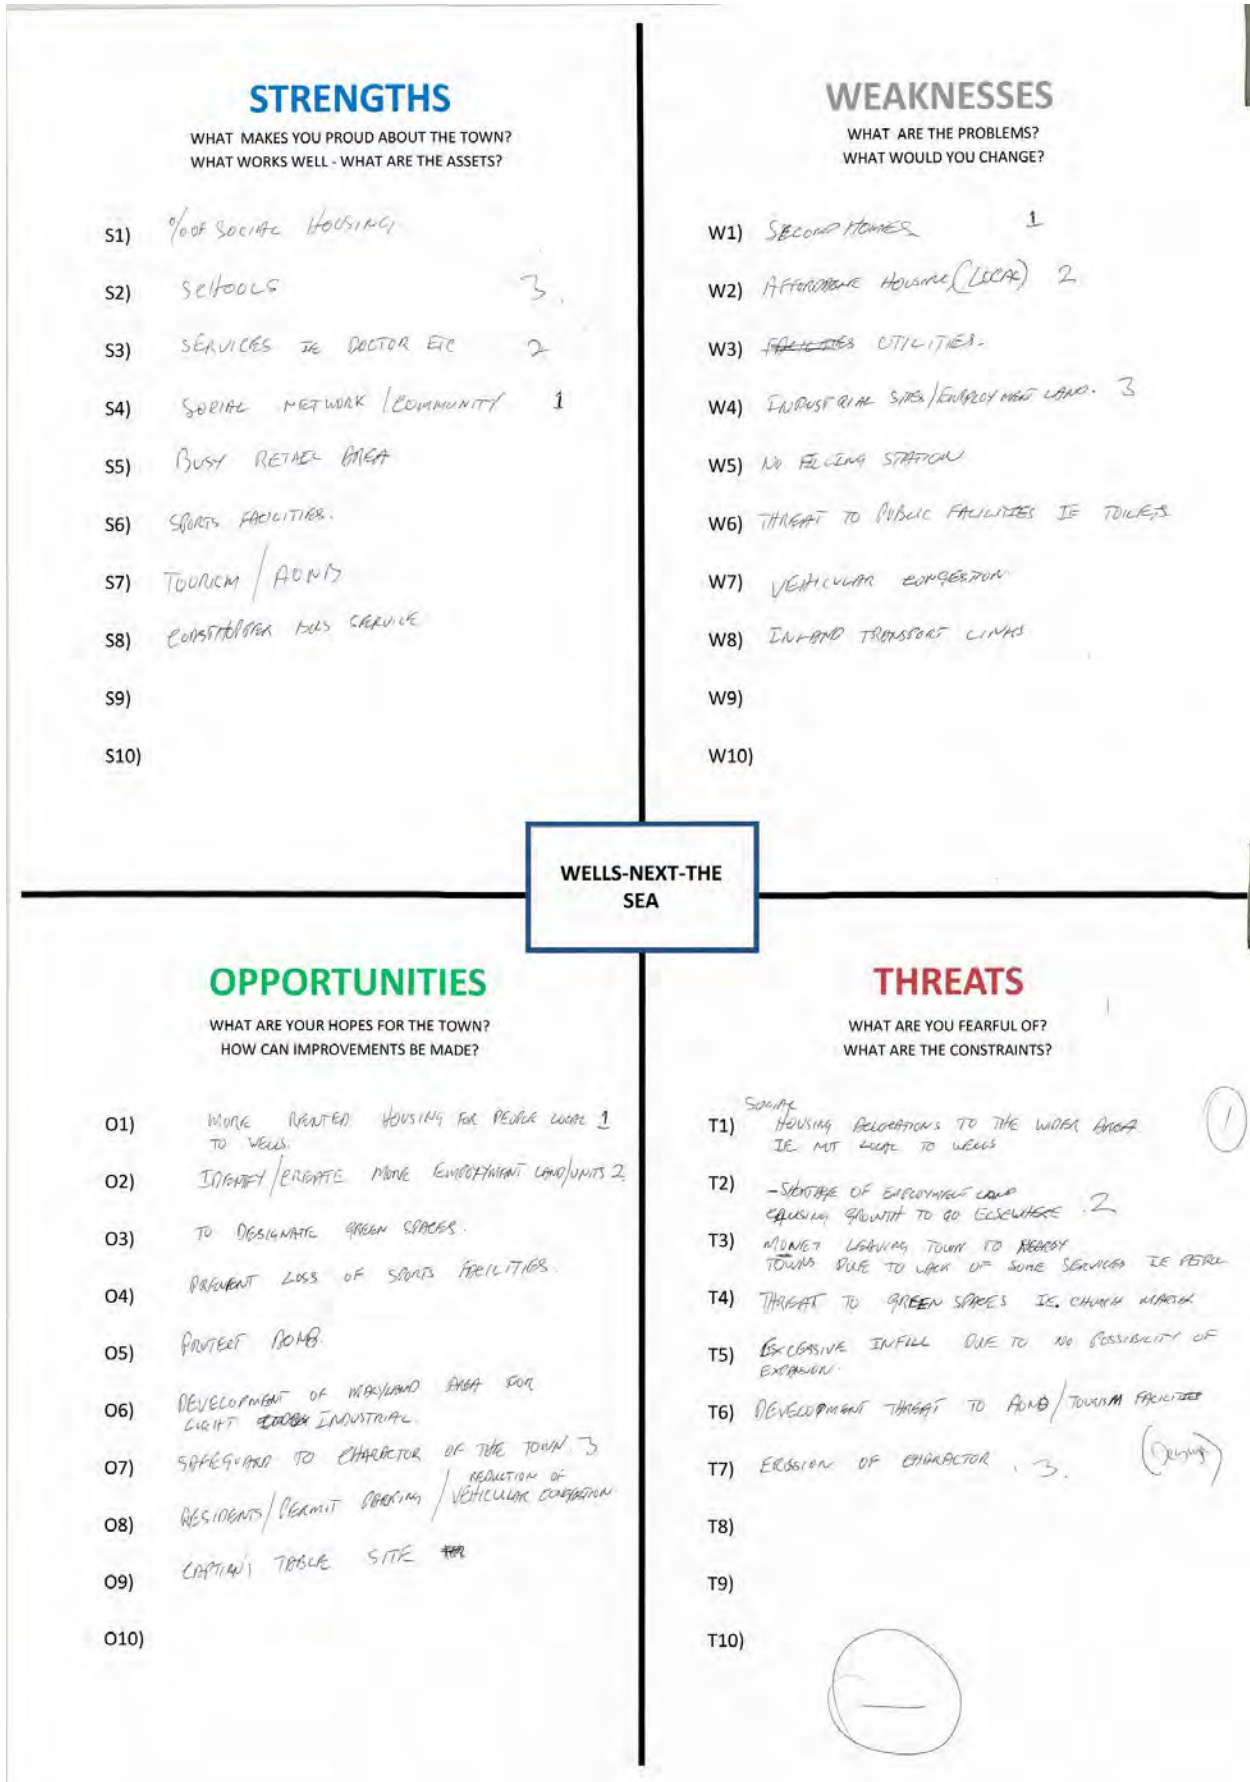 STRENGTHS
WHAT MAKES YOU PROUD ABOUT THE TOWN?
WHAT WORKS WELL - WHAT ARE THE ASSETS?
S1) % OF SOCIAL HOUSING
S2) SCHOOLS 3.
S3) SERVICES IE DOCTOR ETC 2
S4) SOCIAL NETWORK / COMMUNITY 1
S5) BUSY RETAIL AREA
S6) SPORTS FACILITIES.
S7) TOURISM / AONB
S8) COASTHOPPER BUS SERVICE
S9)
S10)
WEAKNESSES
WHAT ARE THE PROBLEMS?
WHAT WOULD YOU CHANGE?
W1) SECOND HOMES 1
W2) AFFORDABLE HOUSING (LOCAL) 2
W3) FACILITIES UTILITIES.
W4) INDUSTRIAL SITES/EMPLOYMENT LAND. 3
W5) NO FILLING STATION
W6) THREAT TO PUBLIC FACILITIES IE TOILETS
W7) VEHICULAR CONGESTION
W8) INLAND TRANSPORT LINKS
W9)
W10)
WELLS-NEXT-THE
SEA
OPPORTUNITIES
WHAT ARE YOUR HOPES FOR THE TOWN?
HOW CAN IMPROVEMENTS BE MADE?
O1) MORE RENTED HOUSING FOR PEOPLE LOCAL 1
TO WELLS.
O2) IDENTIFY/CREATE MORE EMPLOYMENT LAND/UNITS 2
O3) TO DESIGNATE GREEN SPACES.
O4) PREVENT LOSS OF SPORTS FACILITIES.
O5) PROTECT AONB.
O6) DEVELOPMENT OF MARYLAND AREA FOR
LIGHT INDUSTRIAL.
O7) SAFEGUARD TO CHARACTOR OF THE TOWN. 3
O8) RESIDENTS/PERMIT PARKING / REDUCTION OF
VEHICULAR CONGESTION
O9) CAPTIANS TABLE SITE
O10)
THREATS
WHAT ARE YOU FEARFUL OF?
WHAT ARE THE CONSTRAINTS?
SOCIAL
T1) HOUSING ALLOCATIONS TO THE WIDER AREA 1
IE NOT LOCAL TO WELLS
T2) - SHORTAGE OF EMPLOYMENT LAND
CAUSING GROWTH TO GO ELSEWHERE. 2
T3) MONEY LEAVING TOWN TO NEARBY
TOWNS DUE TO LACK OF SOME SERVICES IE PETROL
T4) THREAT TO GREEN SPACES IE. CHURCH MARSH
T5) EXCESSIVE INFILL DUE TO NO POSSIBILITY OF
EXPANSION.
T6) DEVELOPMENT THREAT TO AONB/TOURISM FACILITIES
T7) EROSION OF CHARACTOR. 3. (Design)
T8)
T9)
T10)